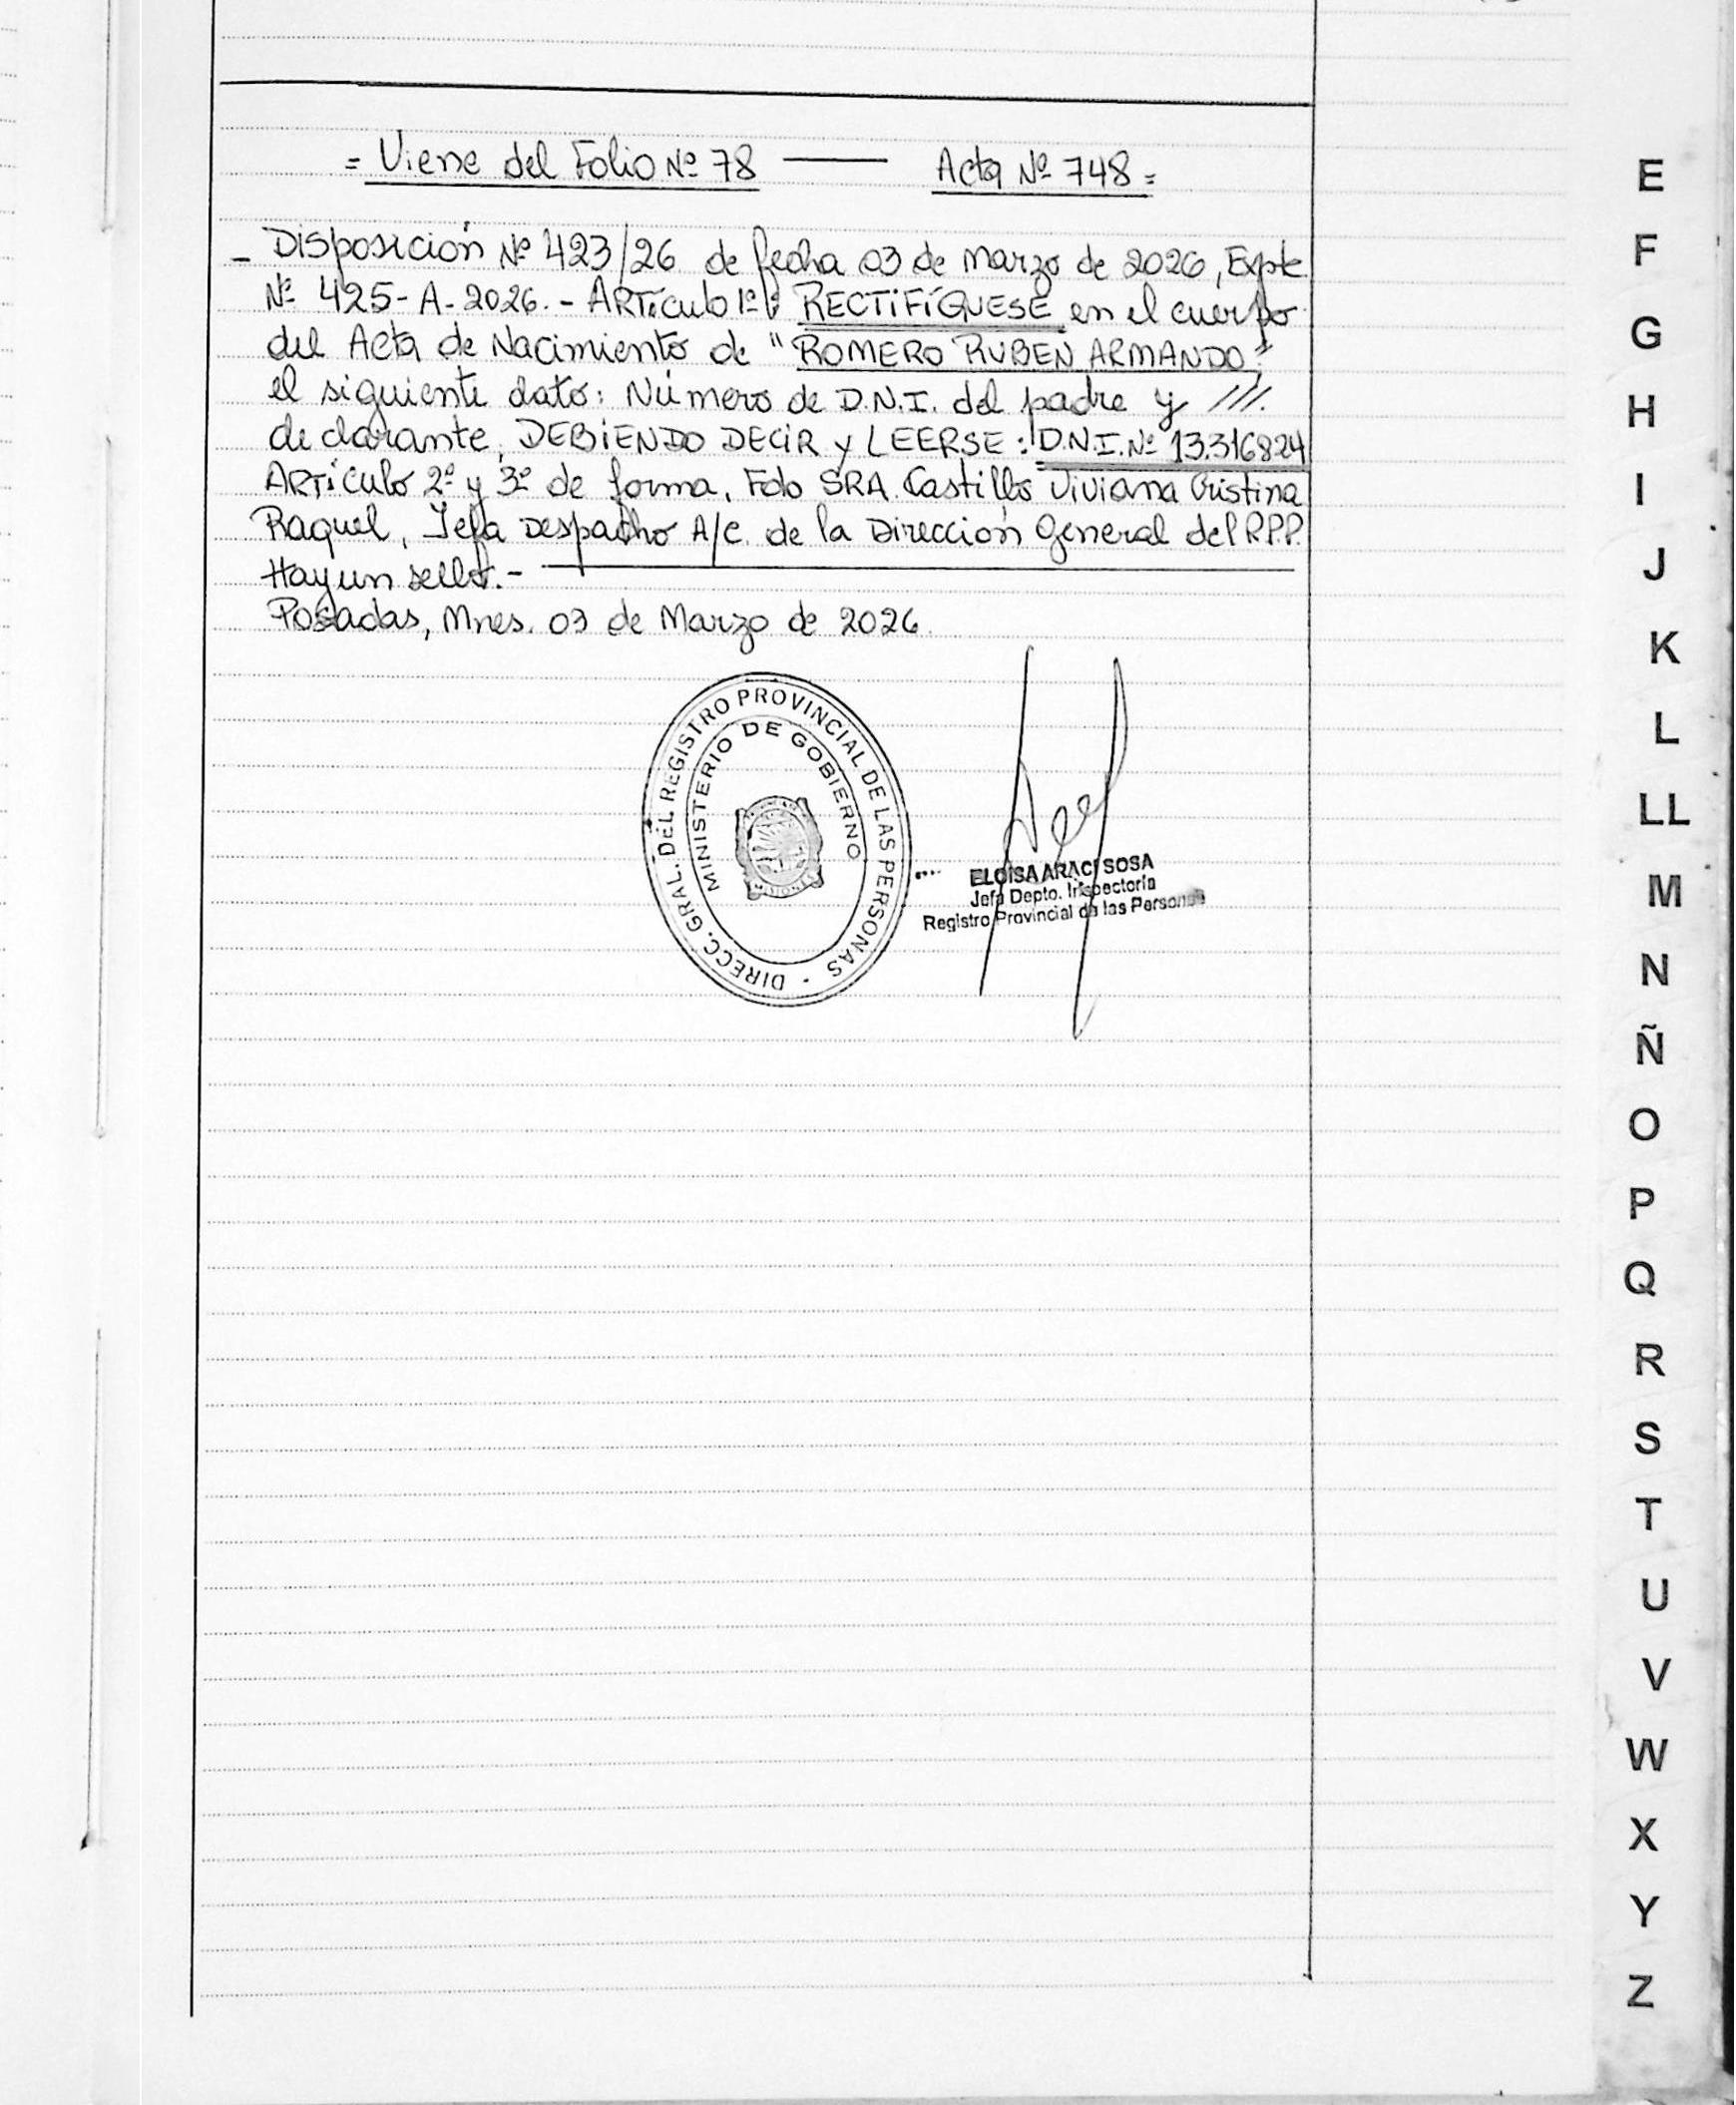 = Viene del Folio Nº 78 —— Acta Nº 748 =
- Disposición Nº 423/26 de fecha 03 de Marzo de 2026, Expte
Nº 425-A-2026.- ARTículo 1º: RECTIFÍQUESE en el cuerpo
del Acta de Nacimiento de "ROMERO RUBEN ARMANDO"
el siguiente dato: Número de D.N.I. del padre y ///.
declarante, DEBIENDO DECIR y LEERSE: D.N.I. Nº 13.316824
ARTículo 2º y 3º de forma. Fdo SRA. Castillo Viviana Cristina
Raquel, Jefa Despacho A/C. de la Dirección General del R.P.P.
Hay un sello.-
Posadas, Mnes. 03 de Marzo de 2026.
DIRECC. GRAL. DEL REGISTRO PROVINCIAL DE LAS PERSONAS
MINISTERIO DE GOBIERNO
ELOISA ARACI SOSA
Jefa Depto. Inspectoría
Registro Provincial de las Personas
E
F
G
H
I
J
K
L
LL
M
N
Ñ
O
P
Q
R
S
T
U
V
W
X
Y
Z